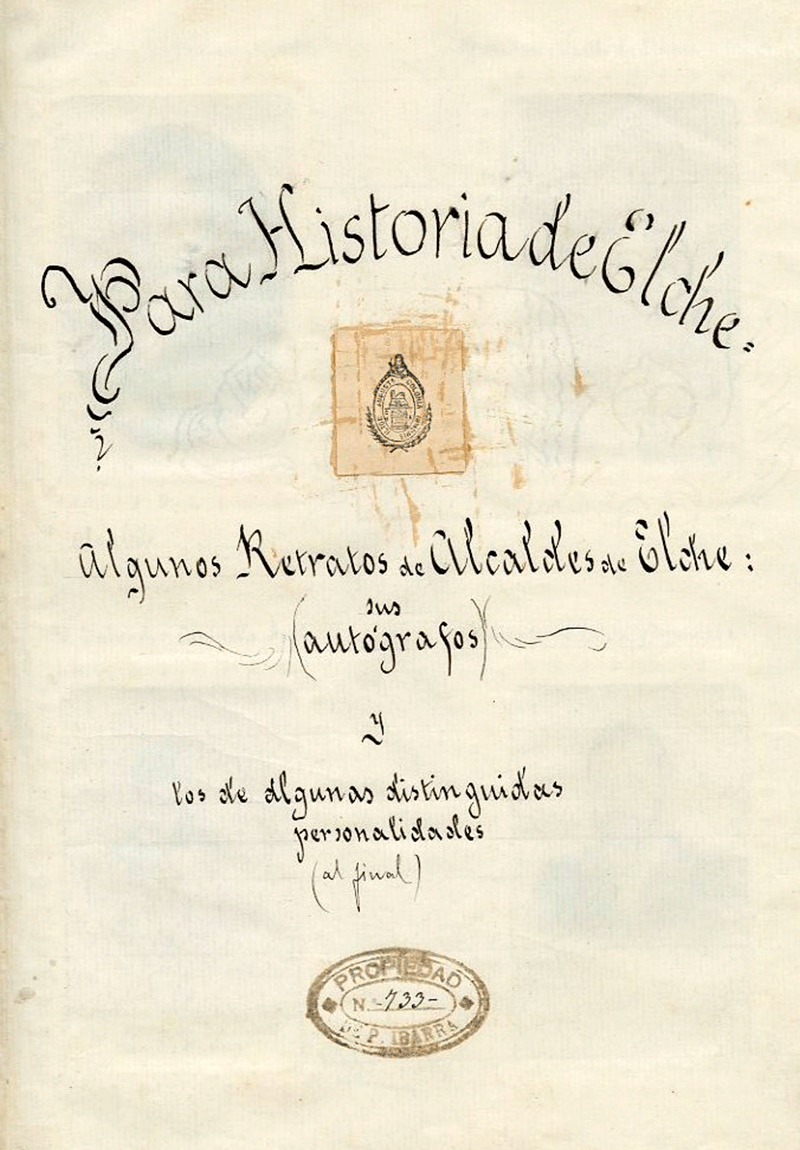 Para Historia de Elche =
ILICE AUGUSTA COLONIA IMMUNE
Algunos Retratos de Alcaldes de Elche:
sus
(autógrafos)
y
los de algunas distinguidas
personalidades
(al final)
PROPIEDAD
N.º -733-
DE P. IBARRA